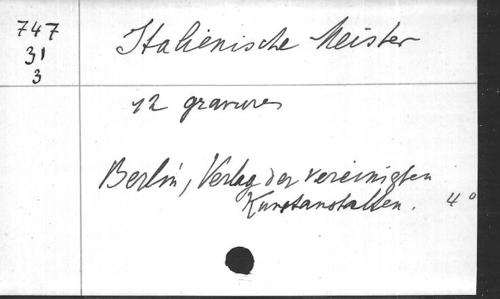 747
31
3
Italienische Meister
12 gravures
Berlin, Verlag der vereinigten
Kunstanstalten. 4°